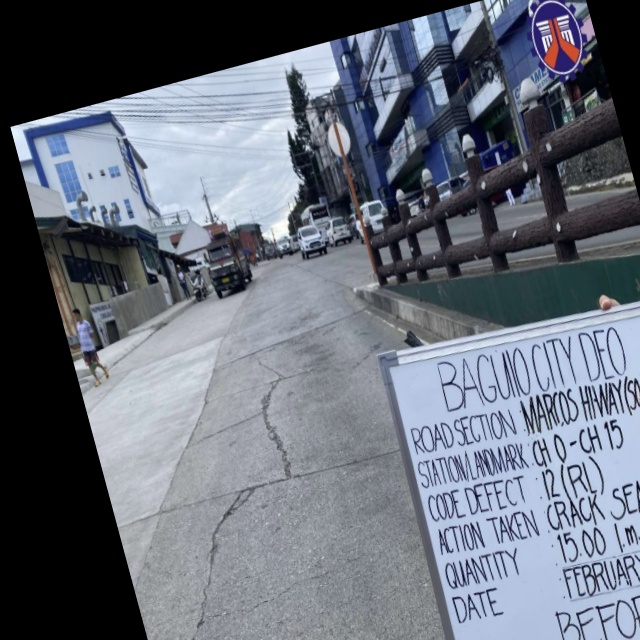 BAGUIO CITY DEO
ROAD SECTION MARCOS HIWAY
STATION LIMIT/MARK. CH 0 - CH 15
CODE DEFECT : 12 (RL)
ACTION TAKEN CRACK
QUANTITY : 15.00
DATE : FEBRUARY